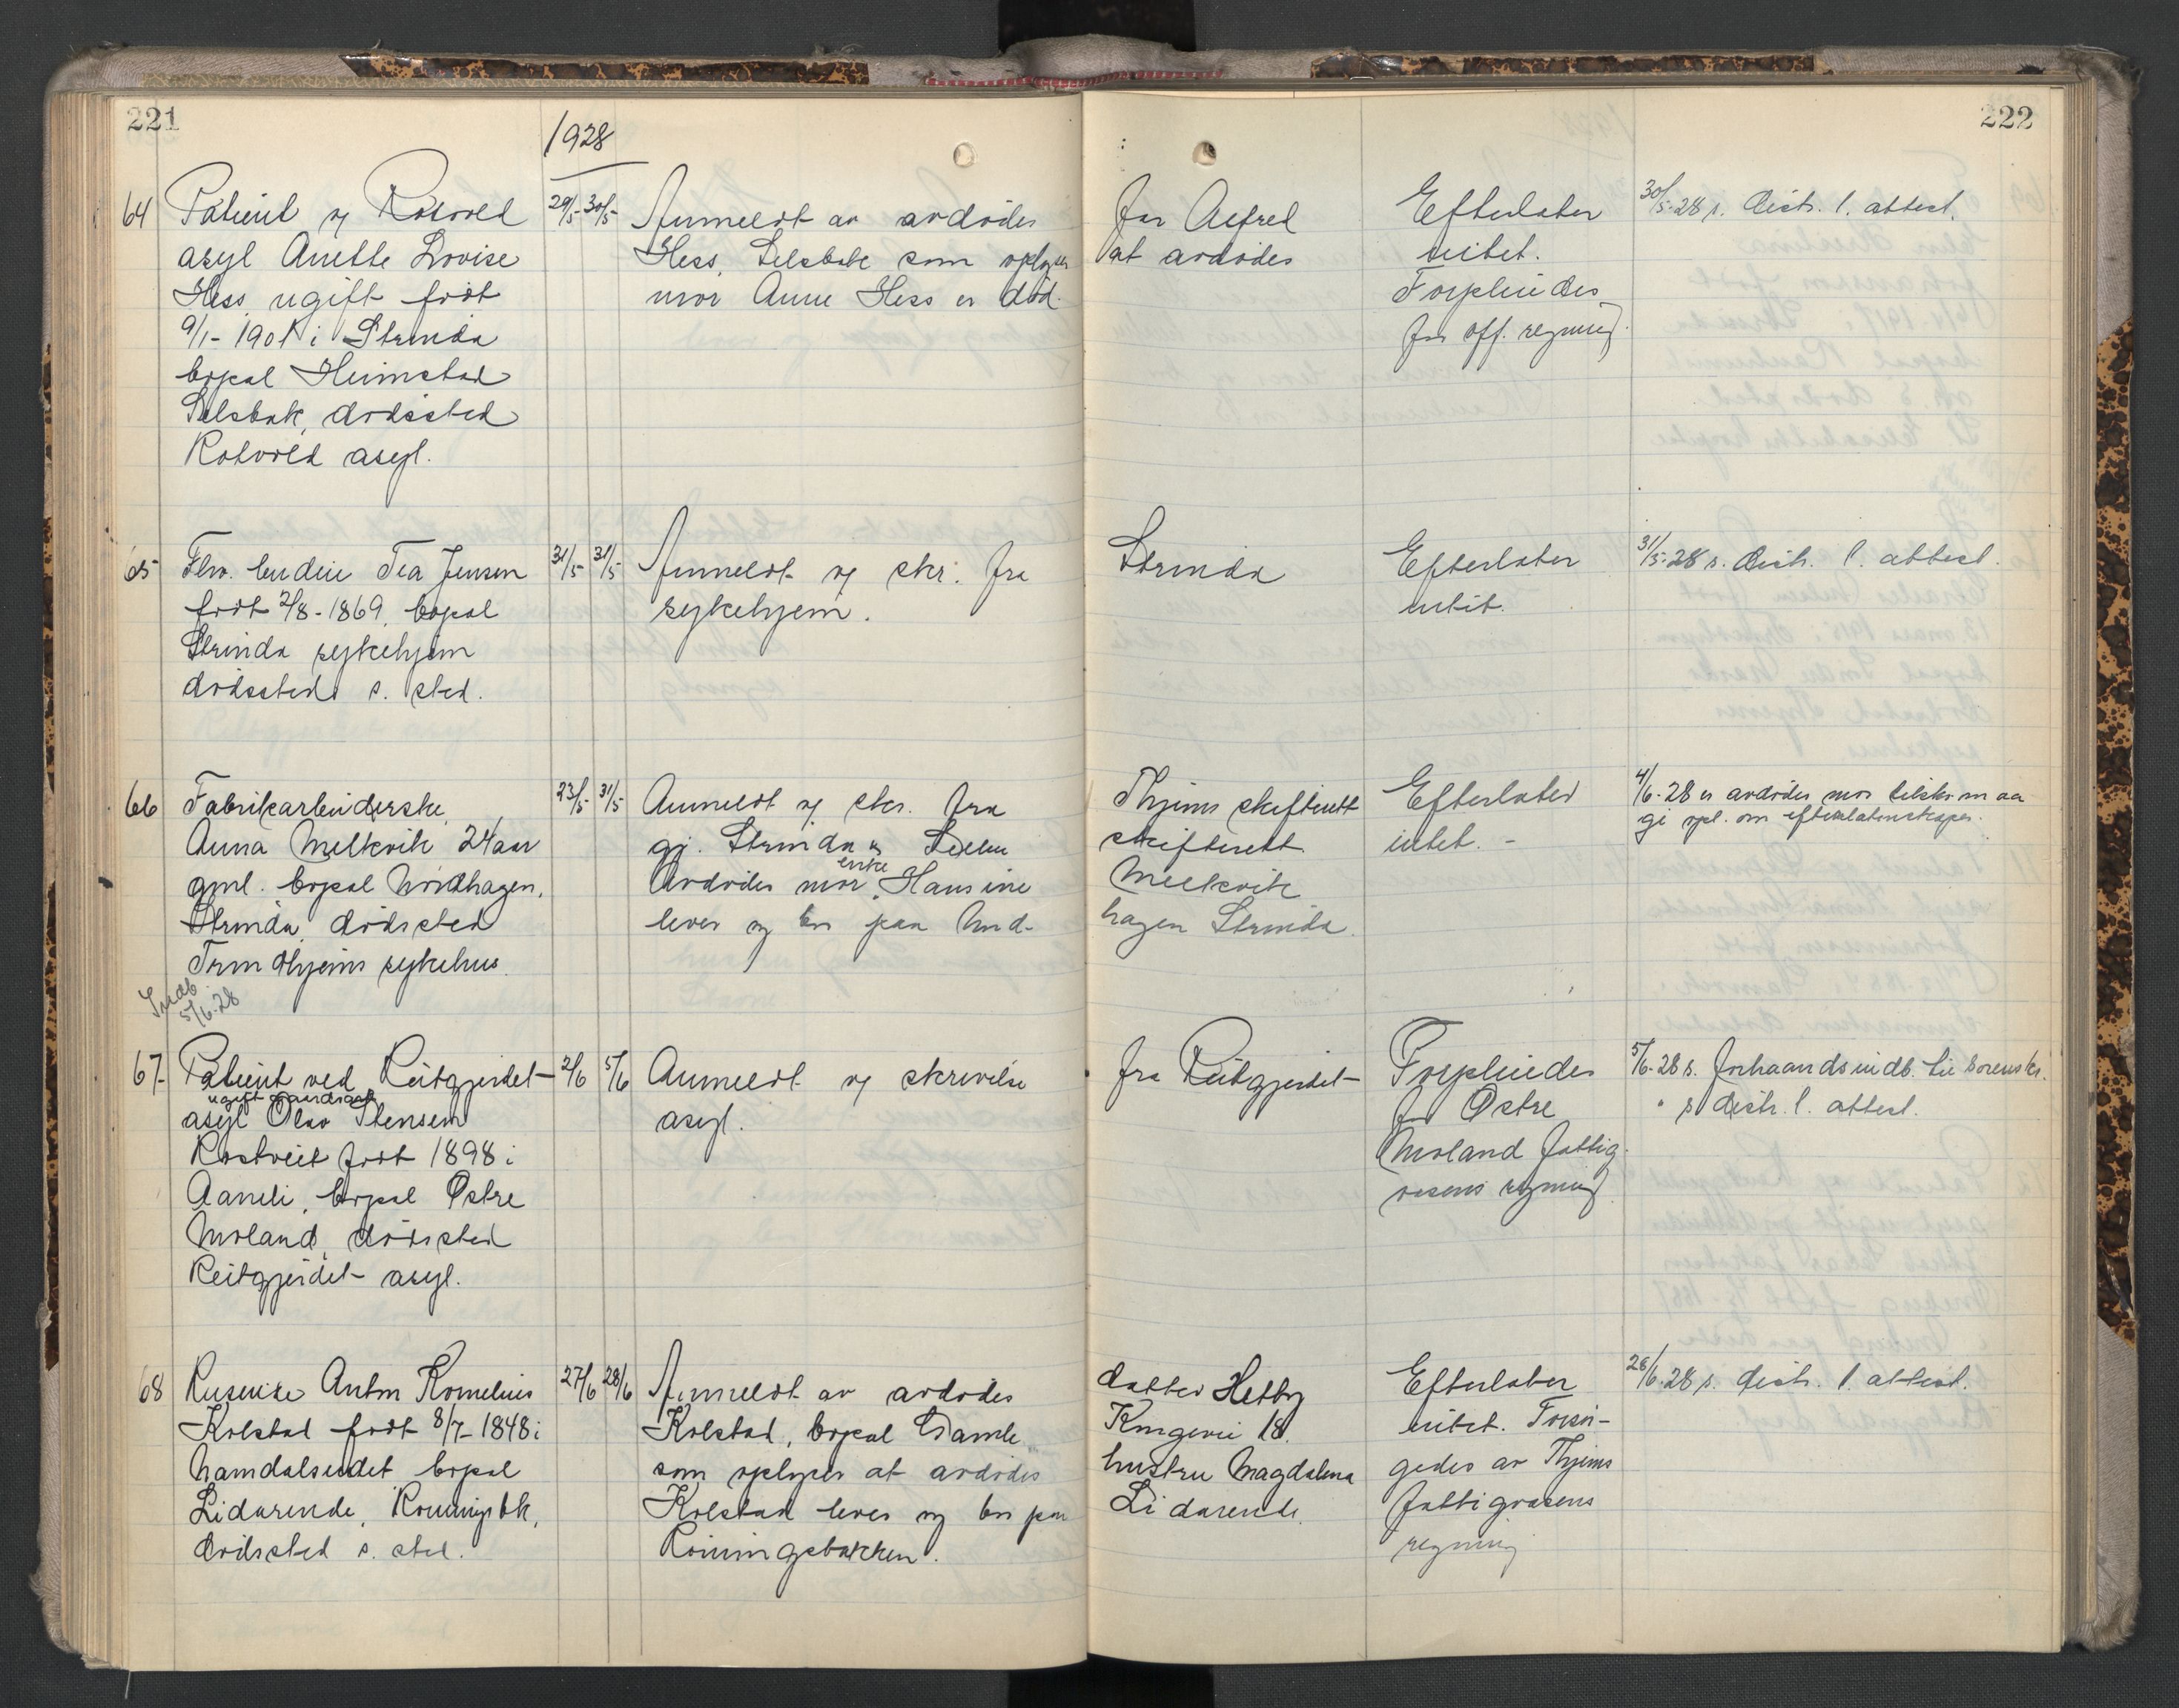 221
222
1928
64
Patient v Rotvold
asyl Anette Lovise
Hess, ugift født
9/1-1901 i Strinda
bopæl Heimstad
Selsbak, dødssted
Rotvold asyl.
29/5
30/5
Anmeldt av avdødes far Alfred
Hess, Selsbak som oplyser at avdødes
mor Anne Hess er død.
Efterlater
intet.
Forpleiedes
for off. regning.
30/5-28 s. distr. l. attest.
65
Fhv. budeie Tea Jensen
født 2/8-1869, bopæl
Strinda sykehjem
dødssted s. sted.
31/5
31/5
Anmeldt v skr. fra Strinda
sykehjem.
Efterlater
intet.
31/5-28 s. distr. l. attest.
66
Fabrikarbeiderske
Anna Melkvik 24 aar
gml. bopæl Nordhagen,
Strinda, dødssted
Trondhjems sykehus.
23/5
31/5
Anmeldt v skr. fra Thjems skifterett
gj. Strinda skifterett
Avdødes mor, enke Hansine Melkvik
lever og bor paa Nord-
hagen Strinda.
Efterlater
intet. -
4/6-28 er avdødes mor tilskr. om aa
gi opl. om efterlatenskaper.
Indb.
5/6-28
67
Patient ved Reitgjerdet
ugift gaardsarb.
asyl Olav Stensen
Rostveit født 1898 i
Aamli, bopæl Østre
Moland, dødssted
Reitgjerdet asyl.
2/6
5/6
Anmeldt v skrivelse fra Reitgjerdet
asyl.
Forpleiedes
for Østre
Moland fattig-
væsens regning
5/6-28 s. forhaandsindb. til sorenskr.
" s distr. l. attest.
68
Anton Kornelius
Kolstad født 8/7-1848 i
Namdalseidet bopæl
Lidarende, Ronningsbk,
dødssted s. sted.
27/6
28/6
Anmeldt av avdødes datter Hetty
Kolstad, bopæl Gamle Kongevei 18.
som oplyser at avdødes hustru Magdalena
Kolstad lever og bor paa Lidarende,
Ronningsbakken.
Efterlater
intet. Forsør-
gedes av Thjems
fattigvæsens
regning
28/6-28 s. distr. l. attest.